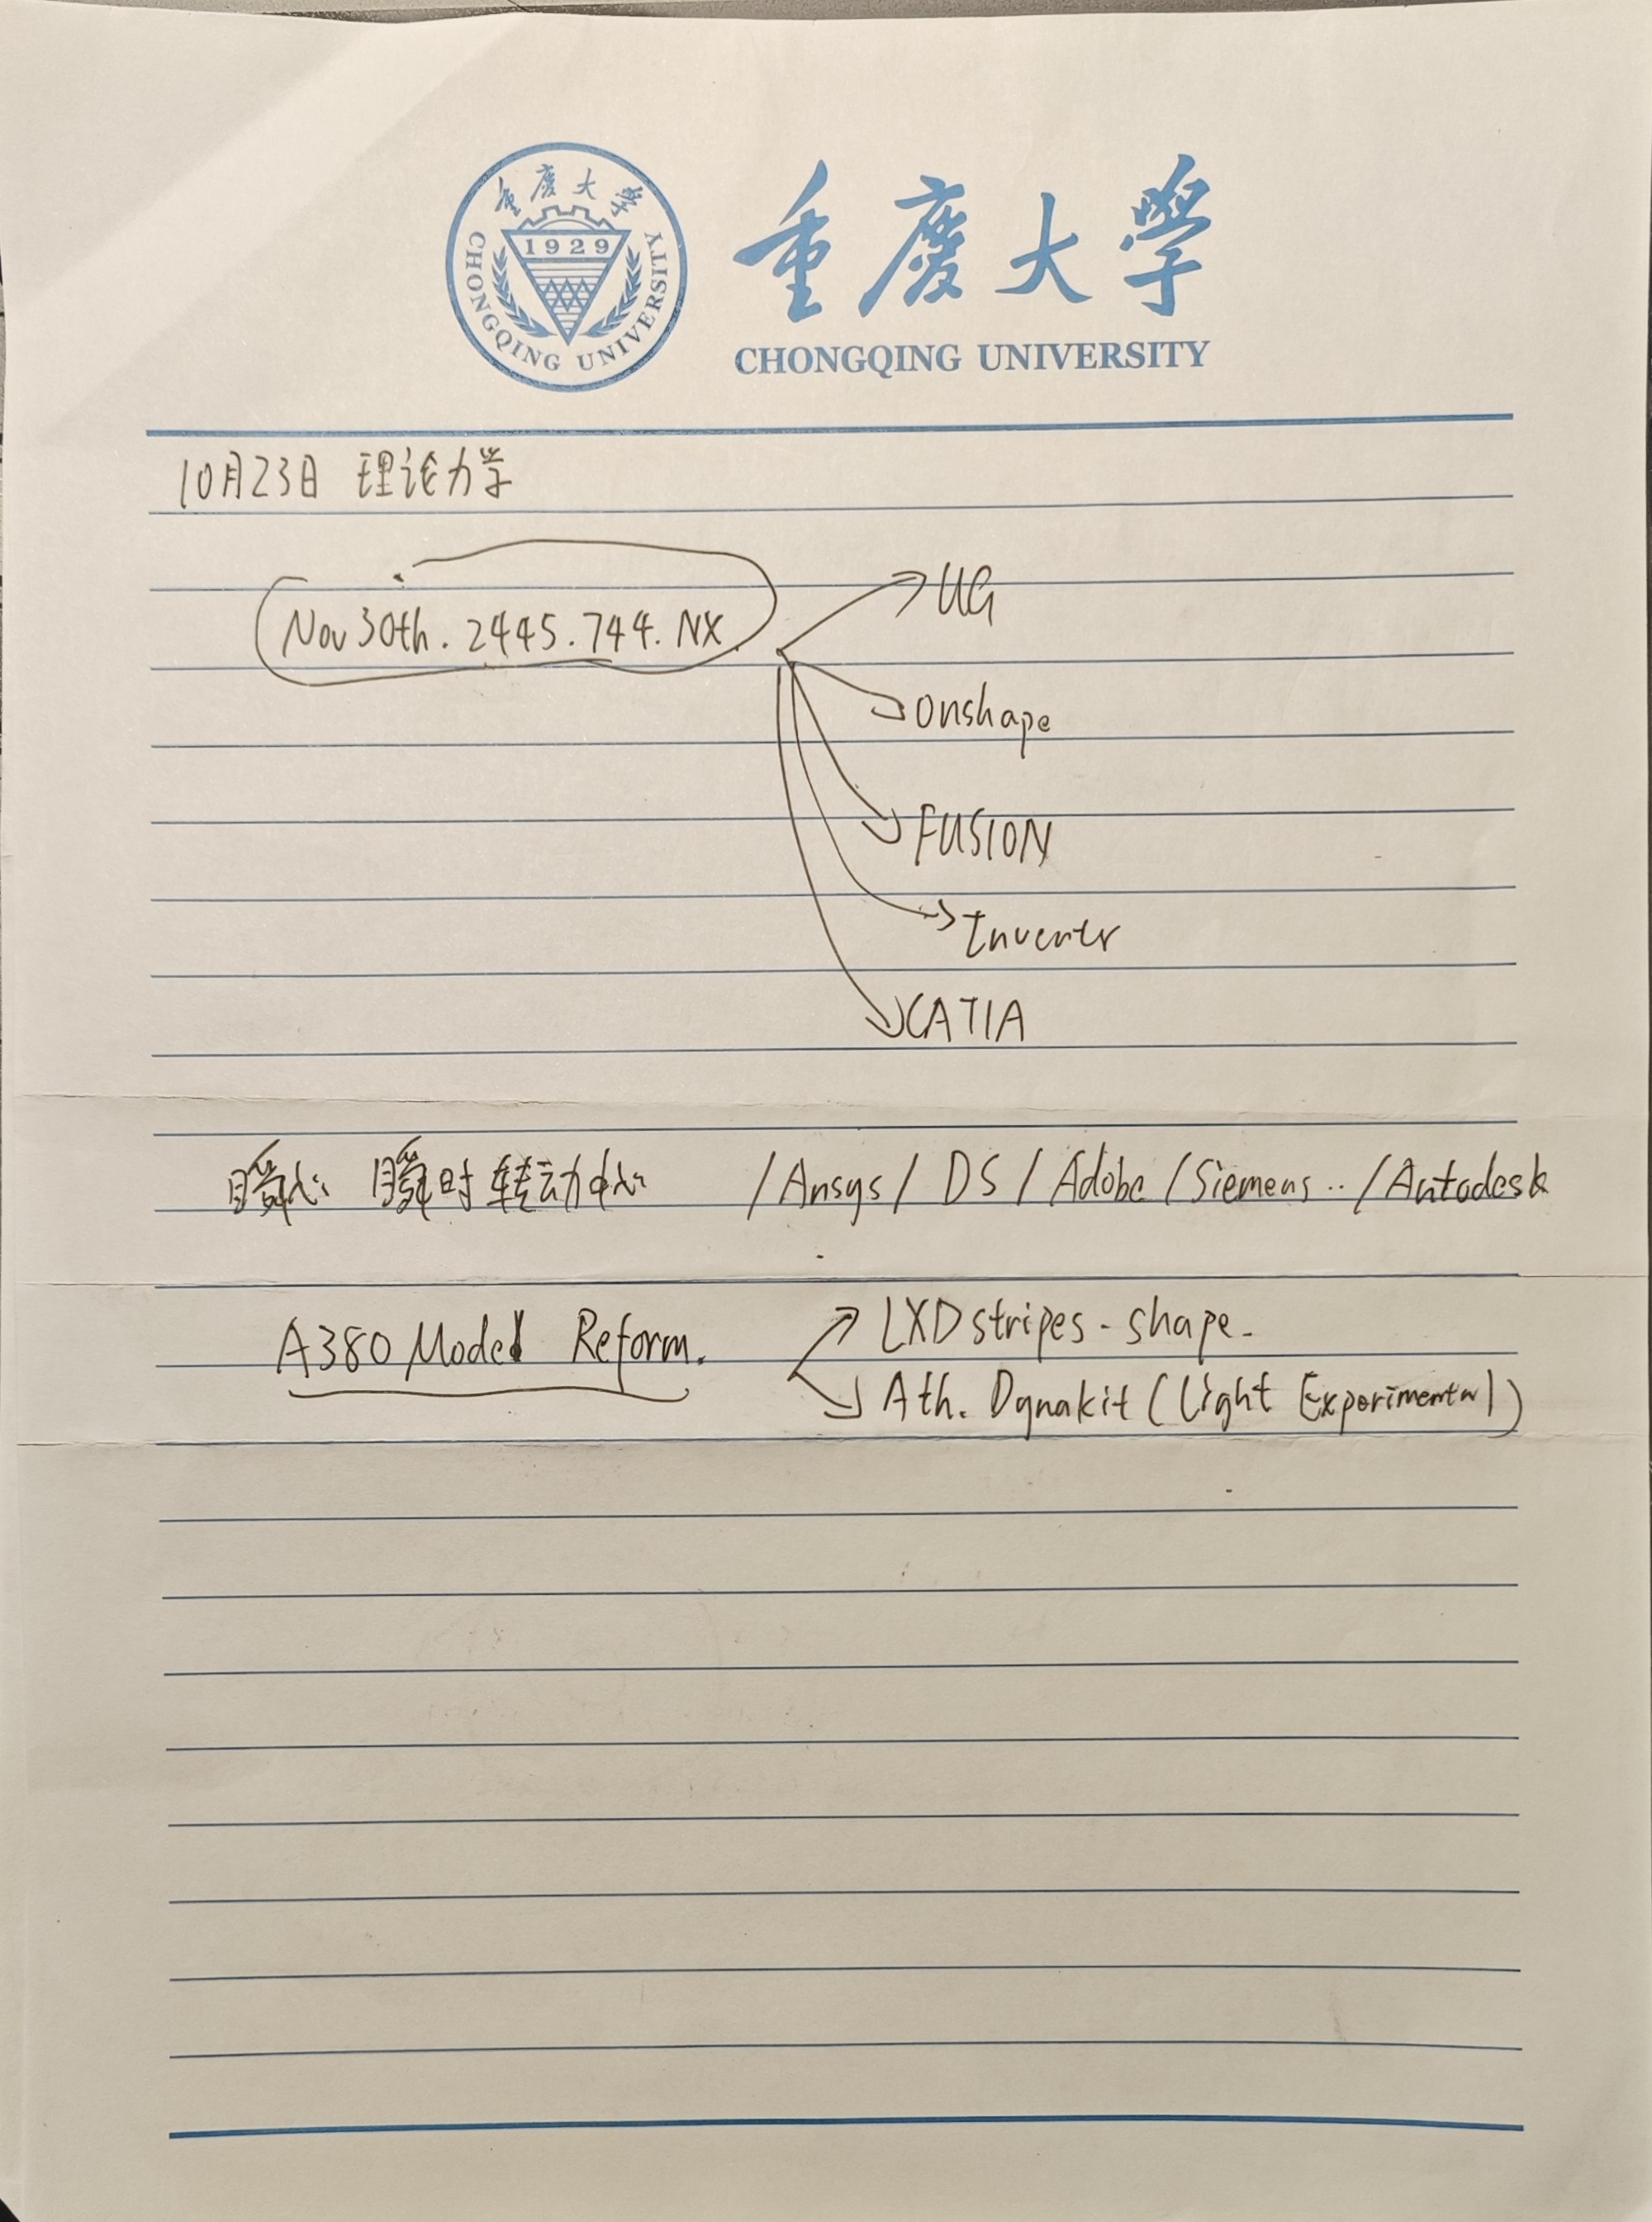 重慶大学
1929
CHONGQING UNIVERSITY
重慶大学
CHONGQING UNIVERSITY
10月23日 理论力学
Nov 30th. 2445.744. NX
UG
Onshape
FUSION
Inventr
CATIA
瞬心 瞬时转动中心 /Ansys/ DS / Adobe /Siemens .. /Autodesk
A380 Model Reform.
LXD stripes - shape -
Ath. Dynakit (Light Experimental)